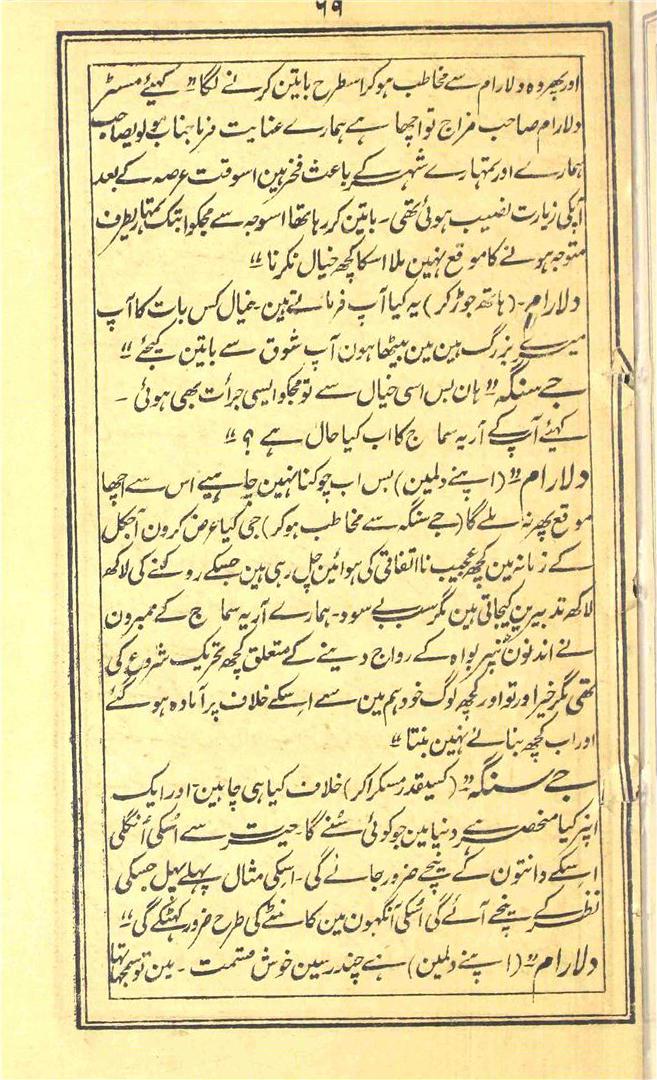 ۶۹
اور پھر وہ دلارام سے مخاطب ہوکر اسطرح باتین کرنے لگا" کہیئے مسٹر
دلارام صاحب مزاج تو اچھا ہے ہمارے عنایت فرما جناب بہولو صاحب
ہمارے اور تمہارے شہر کے باعث فخر ہین اسوقت عرصہ کے بعد
آپکی زیارت نصیب ہوئی تھی۔ باتین کر رہا تھا اسوجہ سے مجکو ابتک تمہاریطرف
متوجہ ہونے کا موقع نہین ملا اسکا کچھ خیال نکرنا"
دلارام۔ (ہاتھ جوڑ کر) یہ کیا آپ فرماتے ہین۔ خیال کس بات کا آپ
میرے بزرگ ہین مین بیٹھا ہون آپ شوق سے باتین کیجئے"
جے سنگہ" ہان بس اسی خیال سے تو مجکو ایسی جرأت بھی ہوئی۔
کہیئے آپکے آریہ سماج کا اب کیا حال ہے؟"
دلارام" (اپنے دلمین) بس اب چوکنا نہین چاہیے اس سے اچھا
موقع پھر نہ ملے گا (جے سنگہ سے مخاطب ہوکر) جی کیا عرض کرون آجکل
کے زمانہ مین کچھ عجیب نااتفاقی کی ہوائین چل رہی ہین جسکے روکنے کی لاکھ
لاکھ تدبیرین کیجاتی ہین مگر سب بے سود۔ ہمارے آریہ سماج کے ممبرون
نے اندنون پُنر بواہ کے رواج دینے کے متعلق کچھ تحریک شروع کی
تھی مگر خیر اور تو اور کچھ لوگ خود ہم مین سے اسکے خلاف پر آمادہ ہو گئے
اور اب کچھ بنائے نہین بنتا"
جے سنگہ" (کسیقدر مسکرا کر) خلاف کیا ہی چاہین اور ایک
اپنر کیا منحصر ہے دنیا مین جو کوئی سُنے گا۔ حیرت سے اُسکی اُنگلی
اسکے دانتون کے نیچے ضرور جائے گی۔ اسکی مثال پہلے پہل جسکی
نظر کے نیچے آئے گی اُسکی آنکھون مین کانٹے کی طرح ضرور کہٹکے گی"
دلارام" (اپنے دلمین) ہے چندرسین خوش قسمت۔ مین تو سمجھا تھا